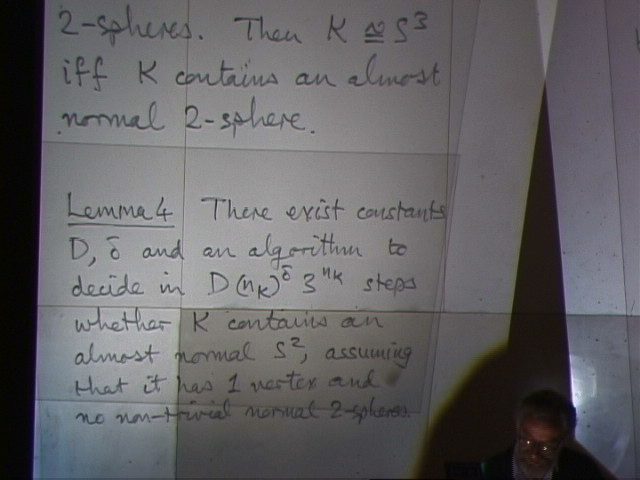 2-spheres. Then K ≅ S³
iff K contains an almost
normal 2-sphere.
Lemma 4 There exist constants
D, δ and an algorithm to
decide in D(n_K)^δ 3^{n_K} steps
whether K contains an
almost normal S², assuming
that it has 1 vertex and
no non-trivial normal 2-spheres.